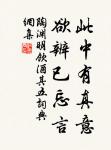 此中有真意
欲辨已忘言
陶渊明飲酒其五詞典
網集